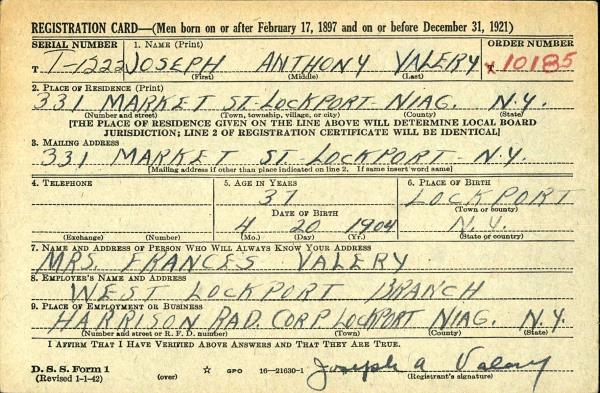 REGISTRATION CARD—(Men born on or after February 17, 1897 and on or before December 31, 1921)
SERIAL NUMBER 1. NAME (Print) ORDER NUMBER
T T-1222 JOSEPH ANTHONY VALERY T 10185
(First) (Middle) (Last)
2. PLACE OF RESIDENCE (Print)
331 MARKET ST LOCKPORT NIAG. N.Y.
(Number and street) (Town, township, village, or city) (County) (State)
[THE PLACE OF RESIDENCE GIVEN ON THE LINE ABOVE WILL DETERMINE LOCAL BOARD
JURISDICTION; LINE 2 OF REGISTRATION CERTIFICATE WILL BE IDENTICAL]
3. MAILING ADDRESS
331 MARKET ST. LOCKPORT N.Y.
[Mailing address if other than place indicated on line 2. If same insert word same]
4. TELEPHONE 5. AGE IN YEARS 6. PLACE OF BIRTH
37 LOCKPORT
DATE OF BIRTH (Town or county)
4 20 1904 N.Y.
(Exchange) (Number) (Mo.) (Day) (Yr.) (State or country)
7. NAME AND ADDRESS OF PERSON WHO WILL ALWAYS KNOW YOUR ADDRESS
MRS. FRANCES VALERY
8. EMPLOYER'S NAME AND ADDRESS
WEST LOCKPORT BRANCH
9. PLACE OF EMPLOYMENT OR BUSINESS
HARRISON RAD. CORP LOCKPORT NIAG. N.Y.
(Number and street or R. F. D. number) (Town) (County) (State)
I AFFIRM THAT I HAVE VERIFIED ABOVE ANSWERS AND THAT THEY ARE TRUE.
Joseph A Valery
D. S. S. Form 1
(Revised 1-1-42) (over) ☆ GPO 16—21630-1 (Registrant's signature)